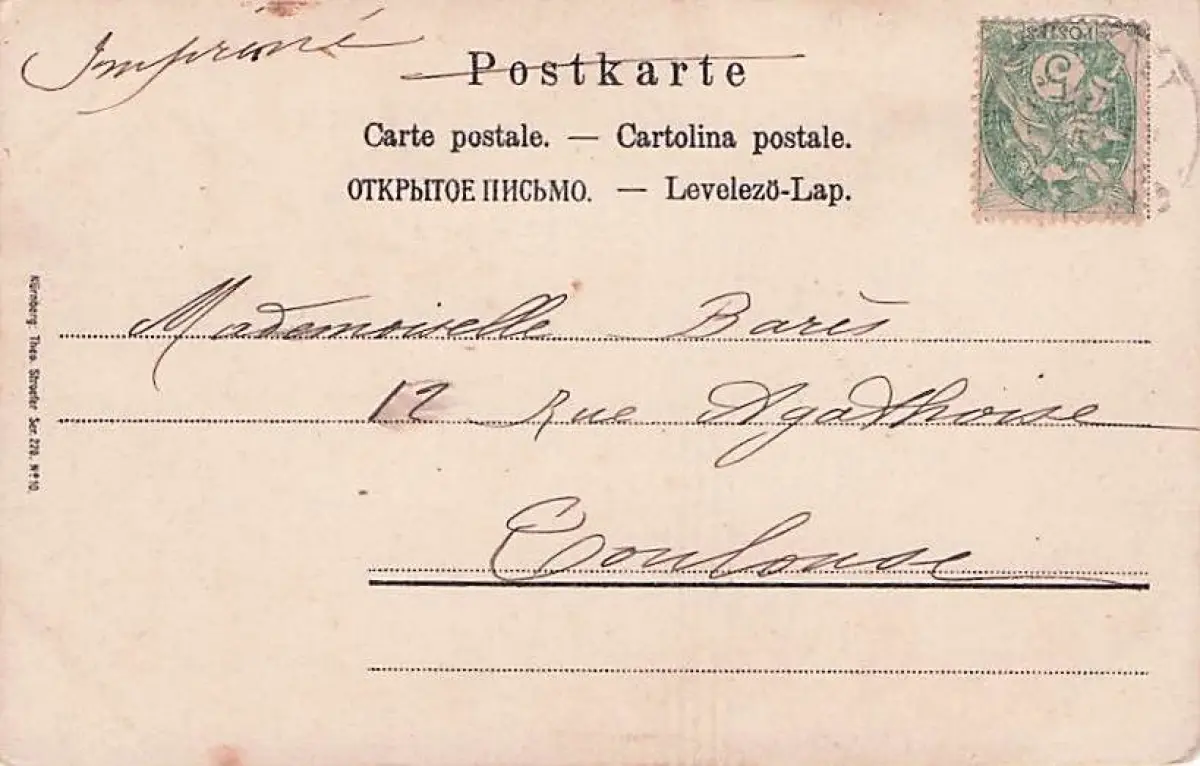 Imprimé
Postkarte
Carte postale. — Cartolina postale.
ОТКРЫТОЕ ПИСЬМО. — Levelező-Lap.
POSTES
5
Mademoiselle Barès
12 Rue Agathoise
Toulouse
Nürnberg: Theo. Stroefer Ser. 278. Nº 10.